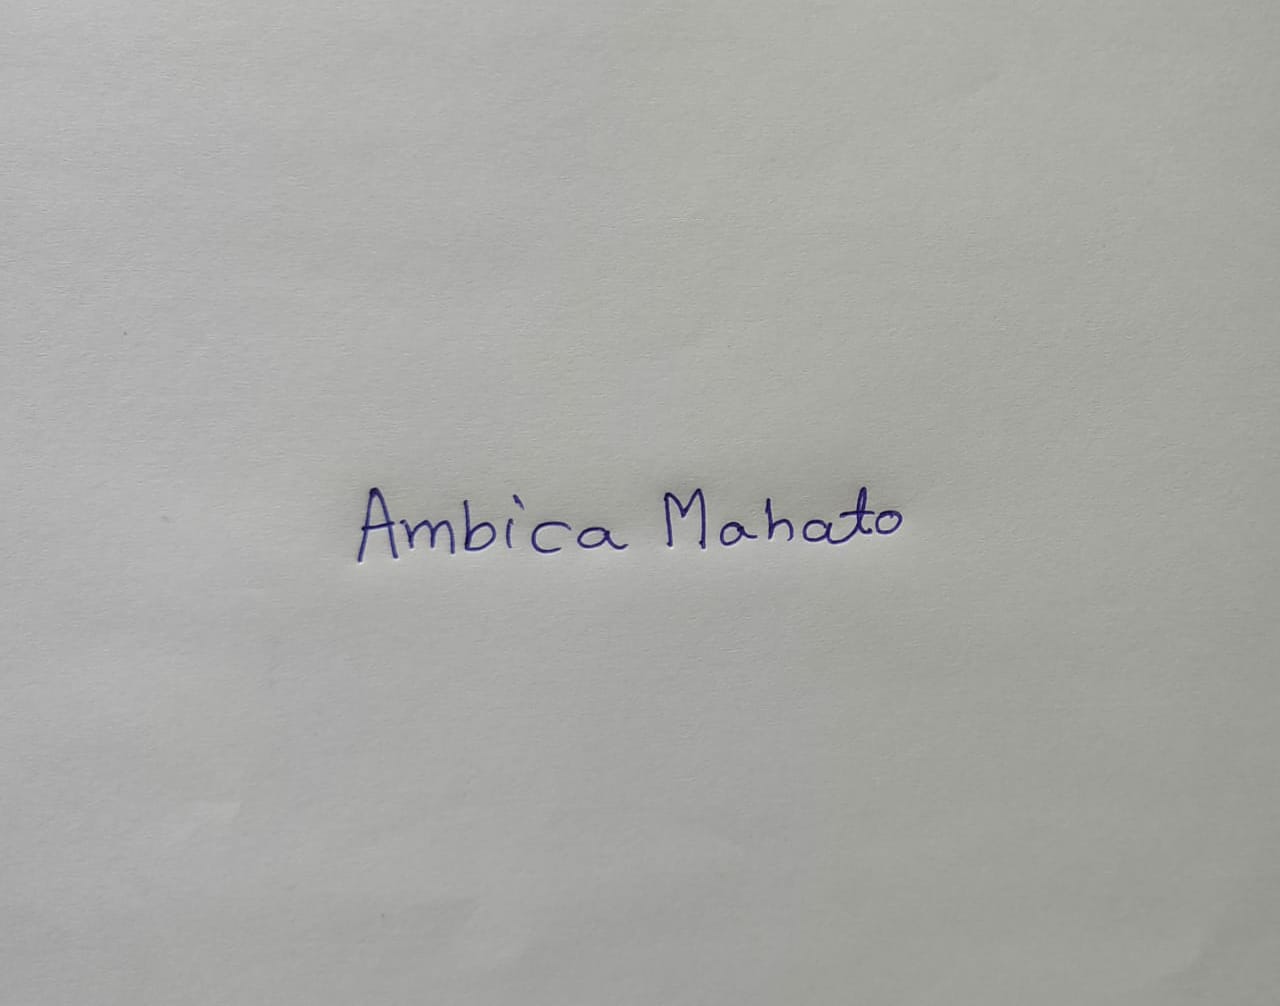 Ambica Mahato